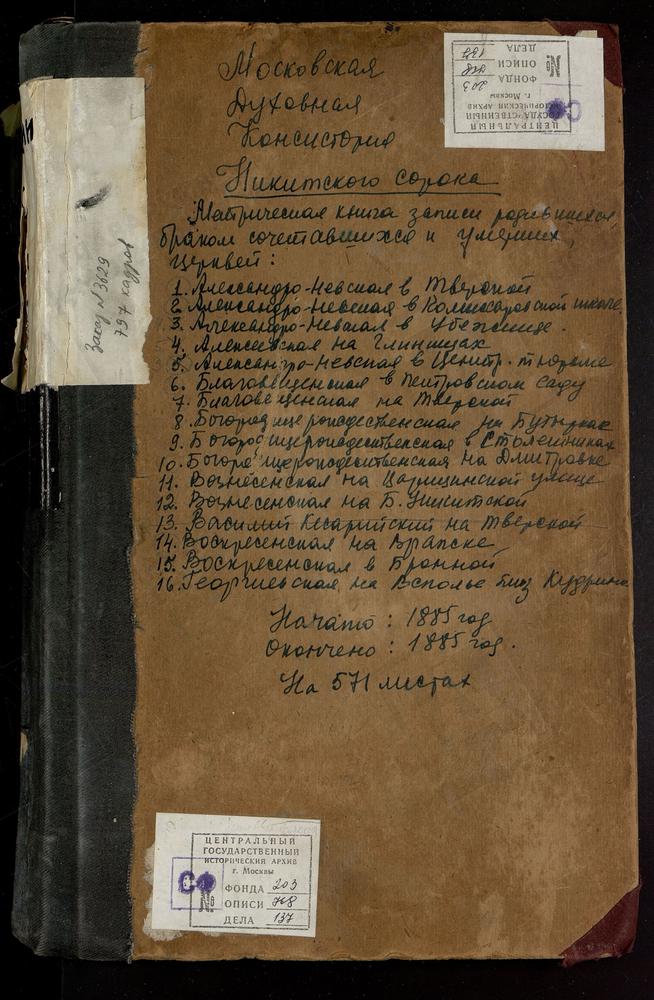 Московская
Духовная
Консистория
Никитского сорока
Метрическая книга записи родившихся,
браком сочетавшихся и умерших,
церквей:
1. Александро-Невская в Тверской
2. Александро-Невская в Комиссаровской школе,
3. Александро-Невская в Убежище.
4. Алексеевская на Глинищах
5. Александро-Невская в Центр. тюрьме
6. Благовещенская в Петровском саду
7. Благовещенская на Тверской
8. Богородицерождественская на Бутырках
9. Богородицерождественская в Столешниках
10. Богородицерождественская на Дмитровке
11. Вознесенская на Царицинской улице
12. Вознесенская на Б. Никитской
13. Василий Кесарийский на Тверской
14. Воскресенская на Вражске
15. Воскресенская в Бронной
16. Георгиевская, на Всполье близ Кудрина
Начато: 1885 год
Окончено: 1885 год.
На 571 листах
Заказ № 3629
797 кадров
ЦЕНТРАЛЬНЫЙ
ГОСУДАРСТВЕННЫЙ
ИСТОРИЧЕСКИЙ АРХИВ
г. Москвы
ФОНДА 203
№ ОПИСИ 768
ДЕЛА 137
ЦЕНТРАЛЬНЫЙ
ГОСУДАРСТВЕННЫЙ
ИСТОРИЧЕСКИЙ АРХИВ
г. Москвы
СФ
ФОНДА 203
№ ОПИСИ 768
ДЕЛА 137